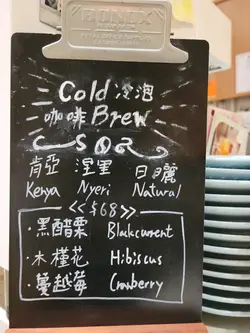 BONOX
Cold 冷泡
咖啡 Brew
SOE
肯亞 涅里 日曬
Kenya Nyeri Natural
<< $68 >>
·黑醋栗 Blackcurrent
·木槿花 Hibiscus
·蔓越莓 Cranberry